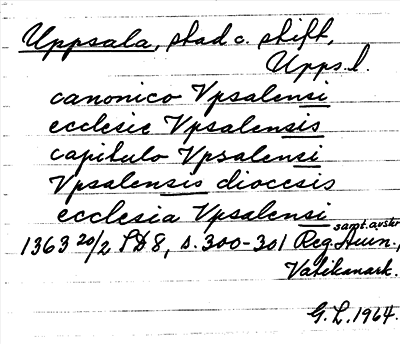 Uppsala, stad o. stift,
Upps.l.
canonico Vpsalensi
ecclesie Vpsalensis
capitulo Vpsalensi
Vpsalensis diocesis
ecclesia Vpsalensi
samt. avskr
1363 20/2 SD 8, s. 300-301 Reg. Aven.,
Vatikanark.
G.L. 1964.